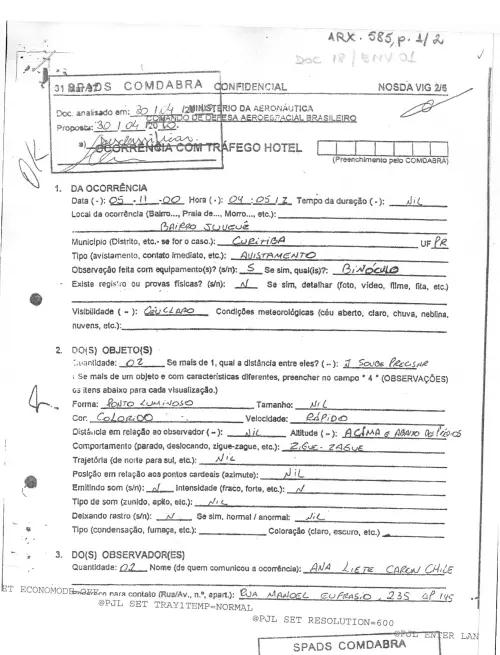 ARX. 585, p. 1/2
DOC 18/ENV 01
SPADS COMDABRA
31
CONFIDENCIAL
NOSDA VIG 2/5
Doc. analisado em: 30 / 04 /20
MINISTÉRIO DA AERONÁUTICA
COMANDO DE DEFESA AEROESPACIAL BRASILEIRO
Proposta: 30 / 04 /20
a)
OCORRÊNCIA COM TRÁFEGO HOTEL
(Preenchimento pelo COMDABRA)
OK
1. DA OCORRÊNCIA
Data (-): 05 - 11 - 00 Hora (-): 04:05 / Z Tempo da duração (-): NIL
Local da ocorrência (Bairro..., Praia de..., Morro..., etc.):
BAIRRO JUVEVÊ
Município (Distrito, etc.- se for o caso.): CURITIBA UF PR
Tipo (avistamento, contato imediato, etc.): AVISTAMENTO
Observação feita com equipamento(s)? (s/n): S Se sim, qual(is)?: BINÓCULO
Existe registro ou provas físicas? (s/n): N Se sim, detalhar (foto, vídeo, filme, fita, etc.)
Visibilidade ( - ): CÉU CLARO Condições meteorológicas (céu aberto, claro, chuva, neblina,
nuvens, etc.):
2. DO(S) OBJETO(S)
Quantidade: 02 Se mais de 1, qual a distância entre eles? ( - ): Ñ SOUBE PRECISAR
( Se mais de um objeto e com características diferentes, preencher no campo " 4 " (OBSERVAÇÕES)
os itens abaixo para cada visualização.)
Forma: PONTO LUMINOSO Tamanho: NIL
Cor: COLORIDO Velocidade: RÁPIDO
Distância em relação ao observador ( - ): NIL Altitude ( - ): ACIMA E ABAIXO DOS PRÉDIOS
Comportamento (parado, deslocando, zigue-zague, etc.): ZIGUE-ZAGUE
Trajetória (de norte para sul, etc.): NIL
Posição em relação aos pontos cardeais (azimute): NIL
Emitindo som (s/n): N Intensidade (fraco, forte, etc.): N
Tipo de som (zunido, apito, etc.): NIL
Deixando rastro (s/n): N Se sim, normal / anormal: NIL
Tipo (condensação, fumaça, etc.): Coloração (claro, escuro, etc.)
3. DO(S) OBSERVADOR(ES)
Quantidade: 02 Nome (de quem comunicou a ocorrência): ANA LIETE CARON CHILE
ET ECONOMODE para contato (Rua/Av., n.º, apart.): RUA MANOEL EUFRASIO, 235 AP 145
@PJL SET TRAY1TEMP=NORMAL
@PJL SET RESOLUTION=600
@PJL ENTER LAN
SPADS COMDABRA